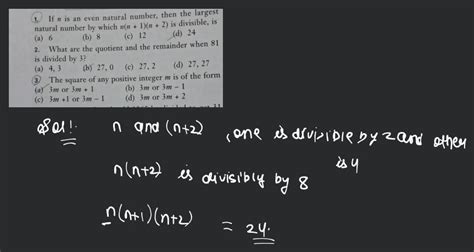 1. If n is an even natural number, then the largest
natural number by which n(n + 1)(n + 2) is divisible, is
(a) 6 (b) 8 (c) 12 (d) 24
2. What are the quotient and the remainder when 81
is divided by 3?
(a) 4, 3 (b) 27, 0 (c) 27, 2 (d) 27, 27
3. The square of any positive integer m is of the form
(a) 3m or 3m + 1 (b) 3m or 3m − 1
(c) 3m +1 or 3m − 1 (d) 3m or 3m + 2
Sol1. n and (n+2) , one is divisible by 2 and other
is 4
n(n+2) is divisibly by 8
n(n+1)(n+2) = 24.